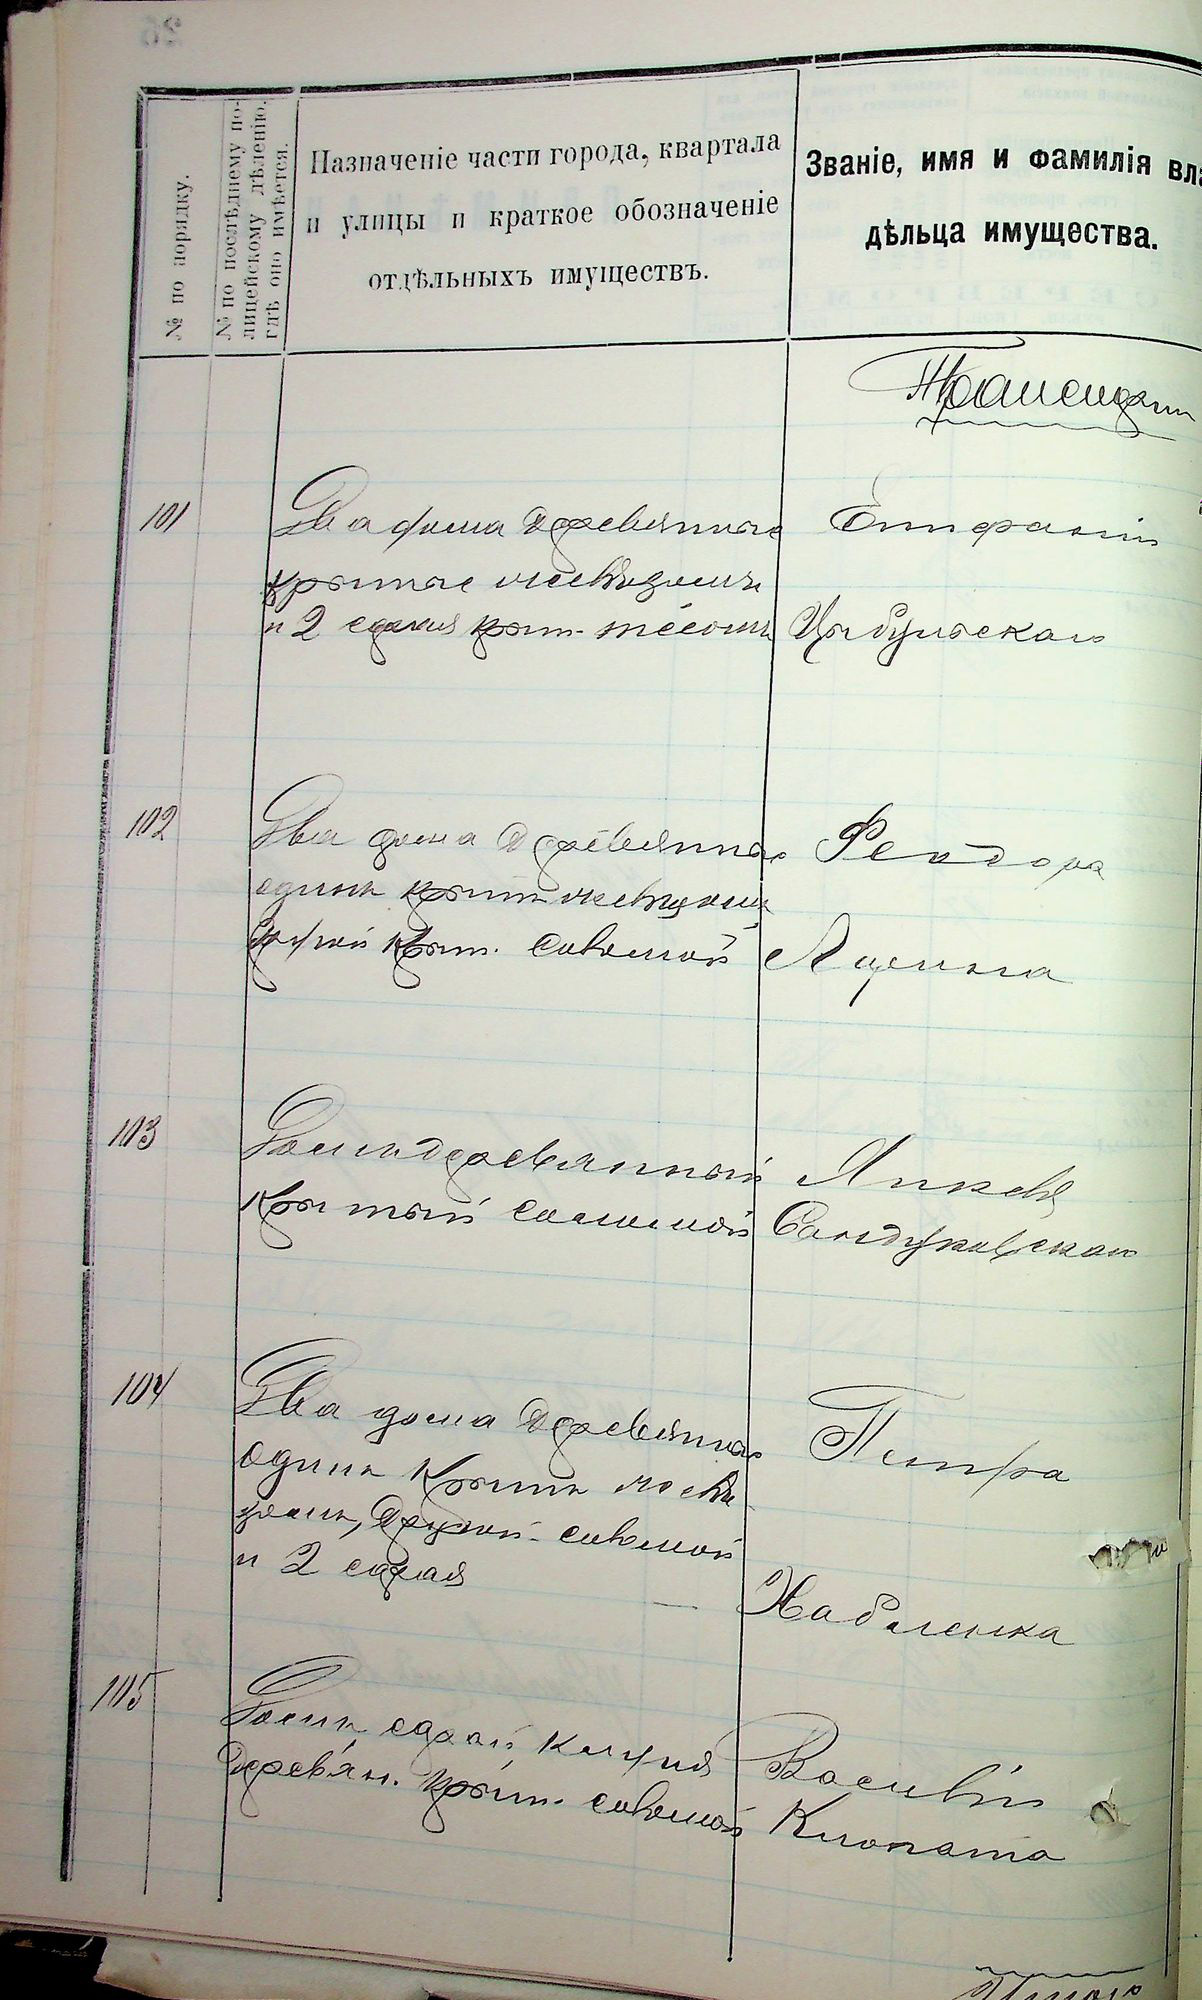 № по порядку.
№ по послѣднему по-
лицейскому дѣленію,
гдѣ оно имѣется.
Названіе части города, квартала
и улицы и краткое обозначеніе
отдѣльныхъ имуществъ.
Званіе, имя и фамилія вла
дѣльца имущества.
101
Два дома деревянные
крытые
и 2 сарая крыт. тёсомъ
Епифанія
Цыбульскаго
102
Два дома деревянные
одинъ крытъ
другой крыт. соломой
Федора
Яцына
103
Домъ деревянный
крытый соломой
Сандуковскаго
104
Два дома деревянные
одинъ крытъ
другой соломой
и 2 сарая
Петра
Хабленка
105
Домъ, сарай, клуня
деревян. крыт. соломой
Василій
Клопота
Итого